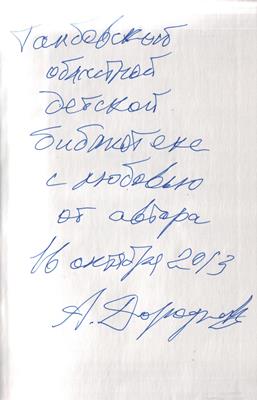 Тамбовский
областной
детской
библиотеке
с любовью
от автора
16 октября 2013
А.